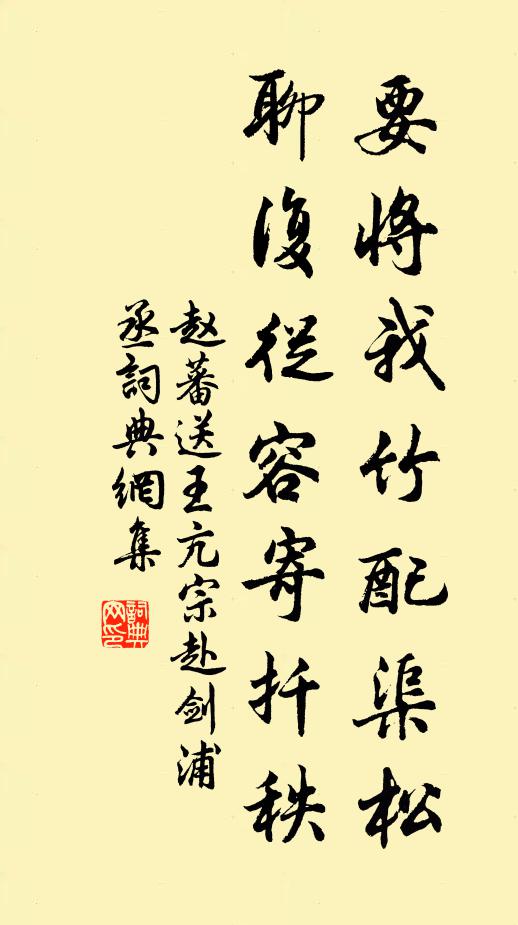 要將我竹配渠松
聊復從容寄扦秩
赵蕃送王亢宗赴剑浦
丞詞典網集
詞典網印